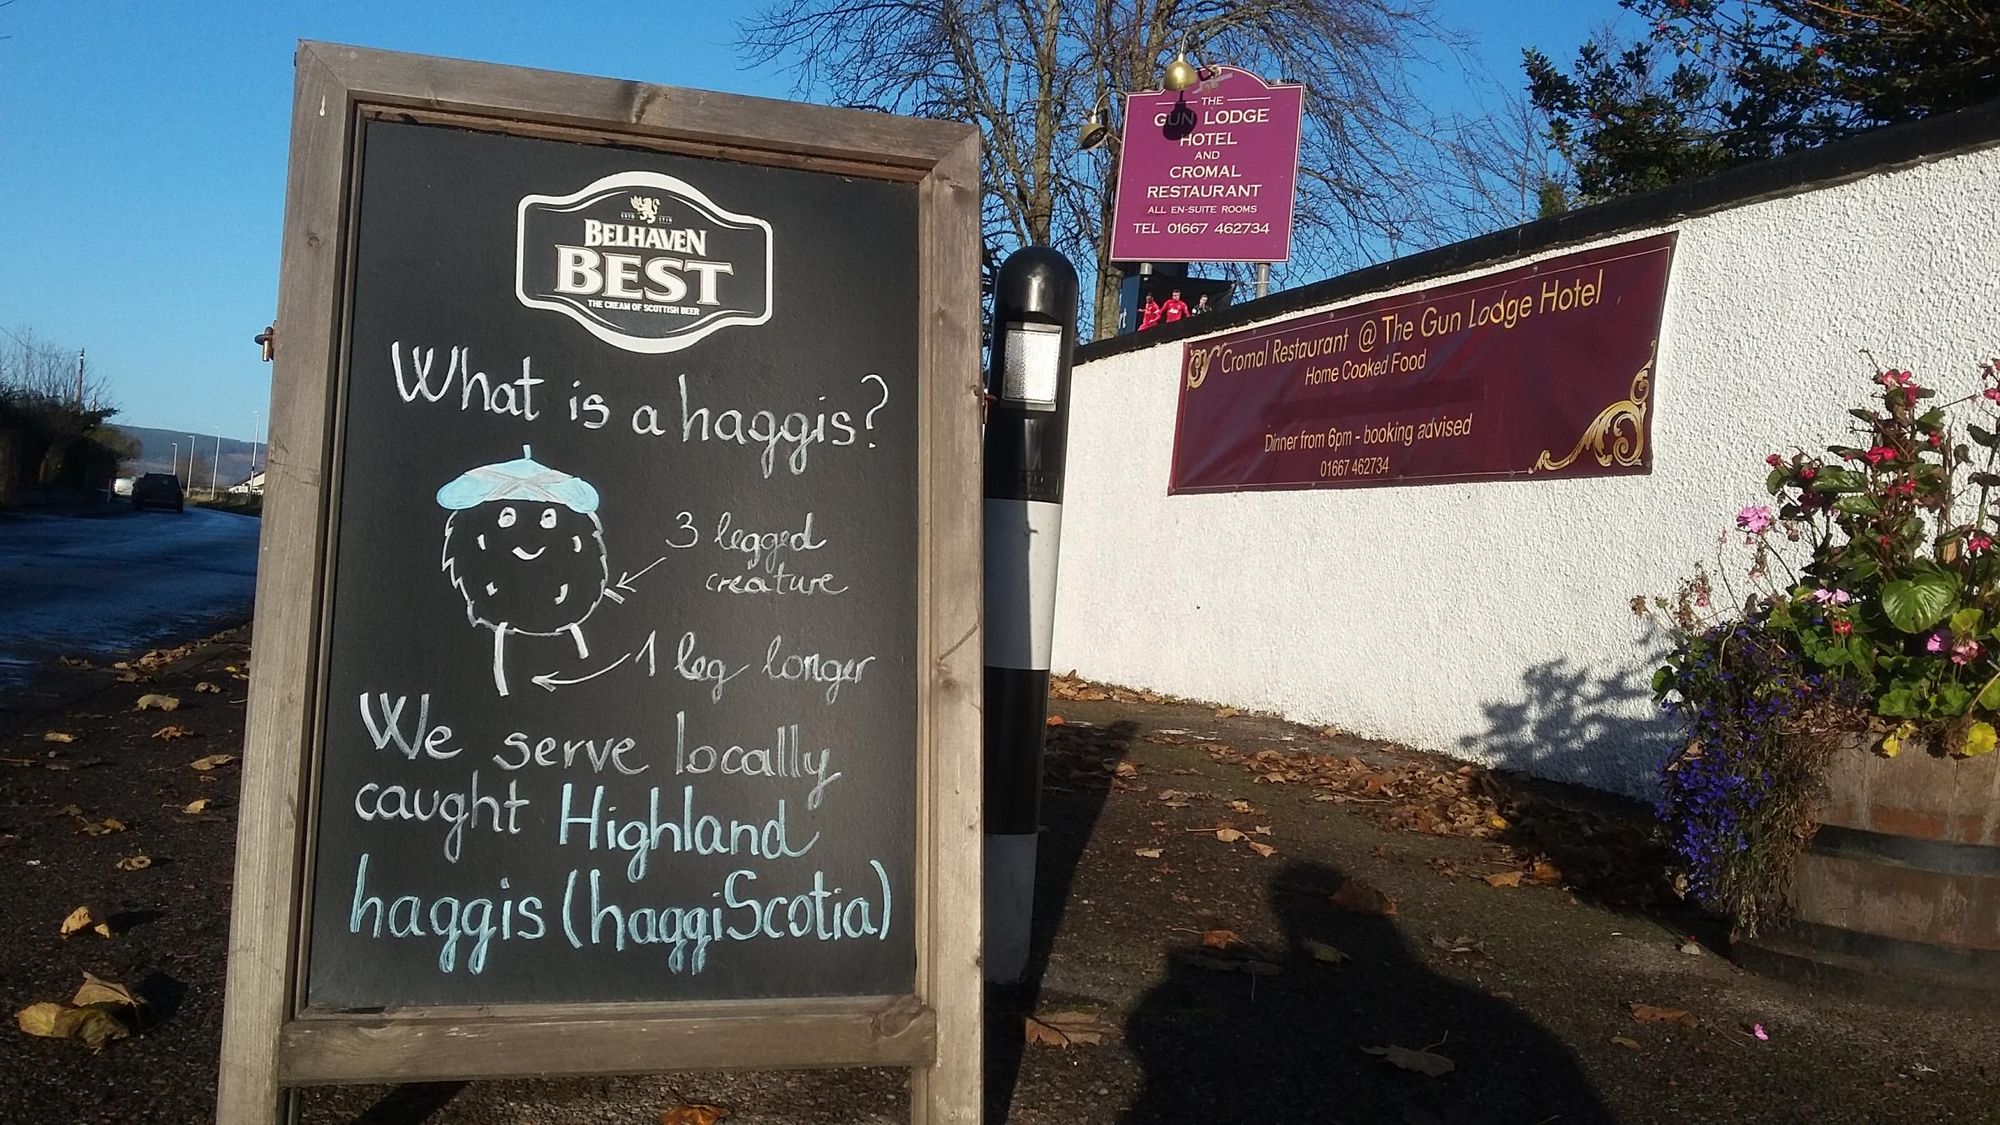 ESTD 1719
BELHAVEN
BEST
THE CREAM OF SCOTTISH BEER
What is a haggis?
3 legged
creature
1 leg longer
We serve locally
caught Highland
haggis (haggiScotia)
THE
GUN LODGE
HOTEL
AND
CROMAL
RESTAURANT
ALL EN-SUITE ROOMS
TEL 01667 462734
Cromal Restaurant @ The Gun Lodge Hotel
Home Cooked Food
Dinner from 6pm - booking advised
01667 462734